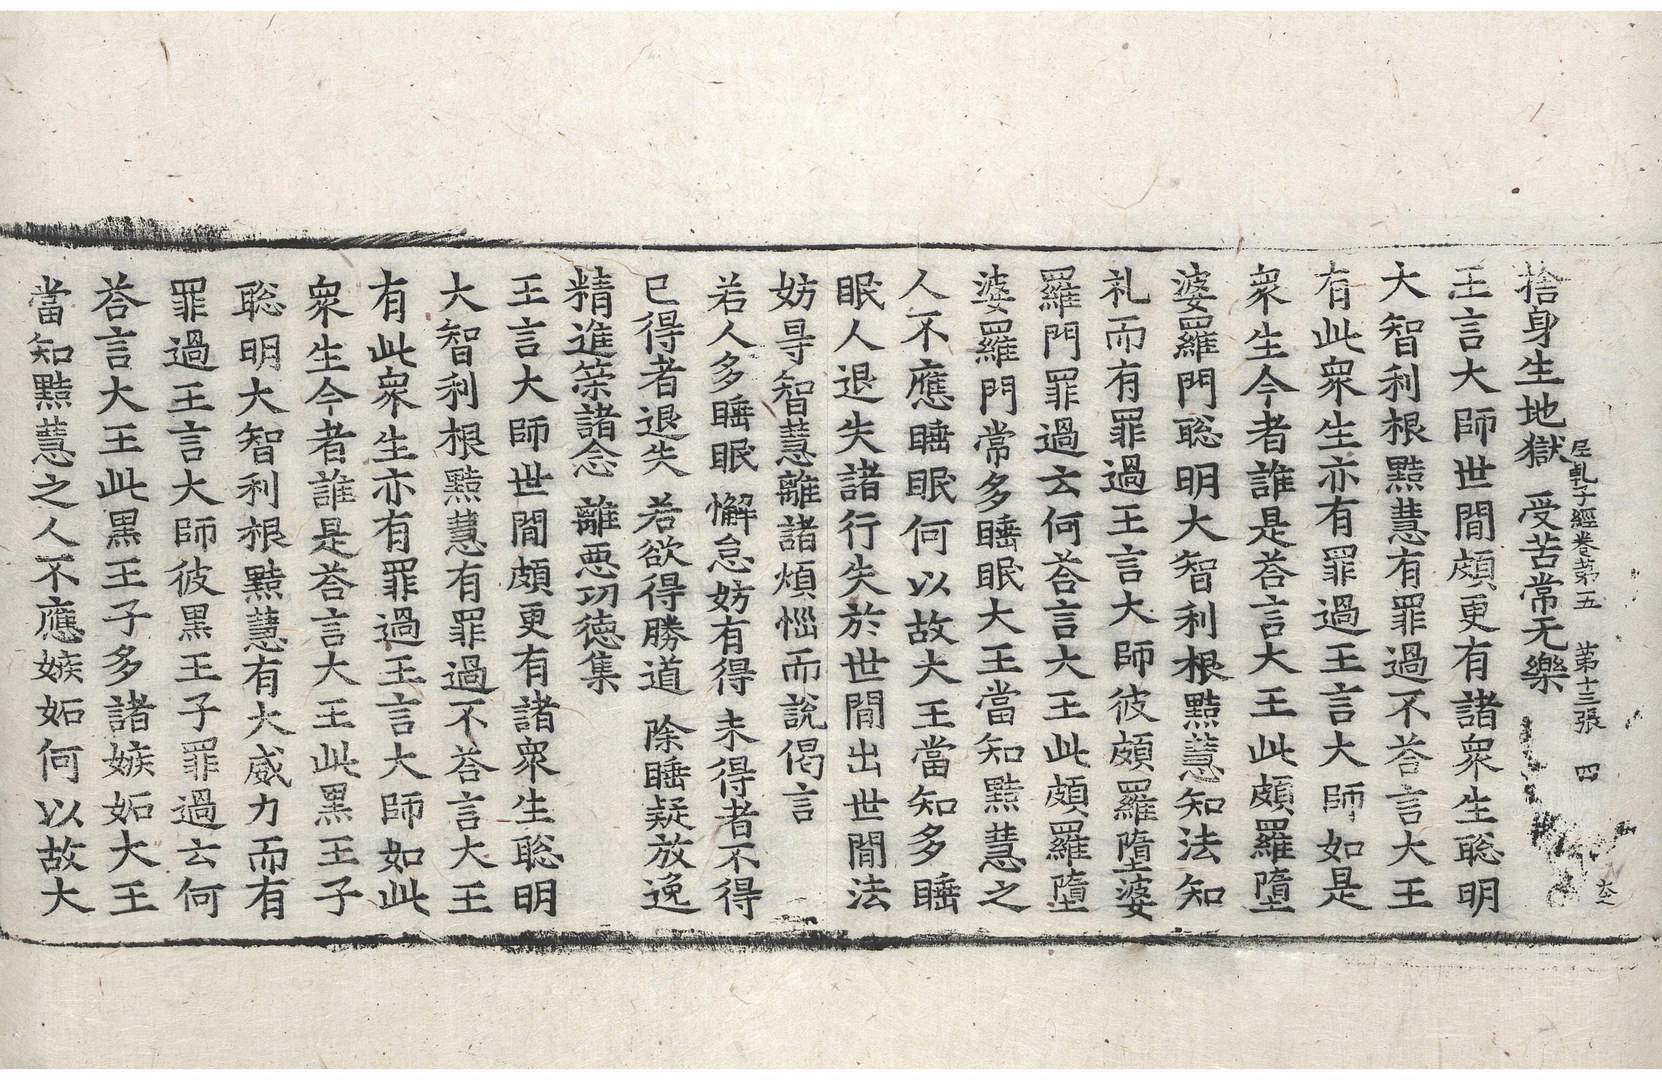 捨身生地獄　受苦常无樂
尼乹子經卷苐五　第十三張　四
王言大師世間頗更有諸衆生聦明
大智利根黠慧有罪過不荅言大王
有此衆生亦有罪過王言大師如是
衆生今者誰是荅言大王此頗羅墮
婆羅門聦明大智利根黠慧知法知
礼而有罪過王言大師彼頗羅墮婆
羅門罪過云何荅言大王此頗羅墮
婆羅門常多睡眠大王當知黠慧之
人不應睡眠何以故大王當知多睡
眠人退失諸行失於世間出世間法
妨㝵智慧離諸煩惱而說偈言
若人多睡眠　懈怠妨有得　未得者不得
已得者退失　若欲得勝道　除睡疑放逸
精進策諸念　離悪功徳集
王言大師世間頗更有諸衆生聦明
大智利根黠慧有罪過不荅言大王
有此衆生亦有罪過王言大師如此
衆生今者誰是荅言大王此黒王子
聦明大智利根黠慧有大威力而有
罪過王言大師彼黒王子罪過云何
荅言大王此黒王子多諸嫉妬大王
當知黠慧之人不應嫉妬何以故大